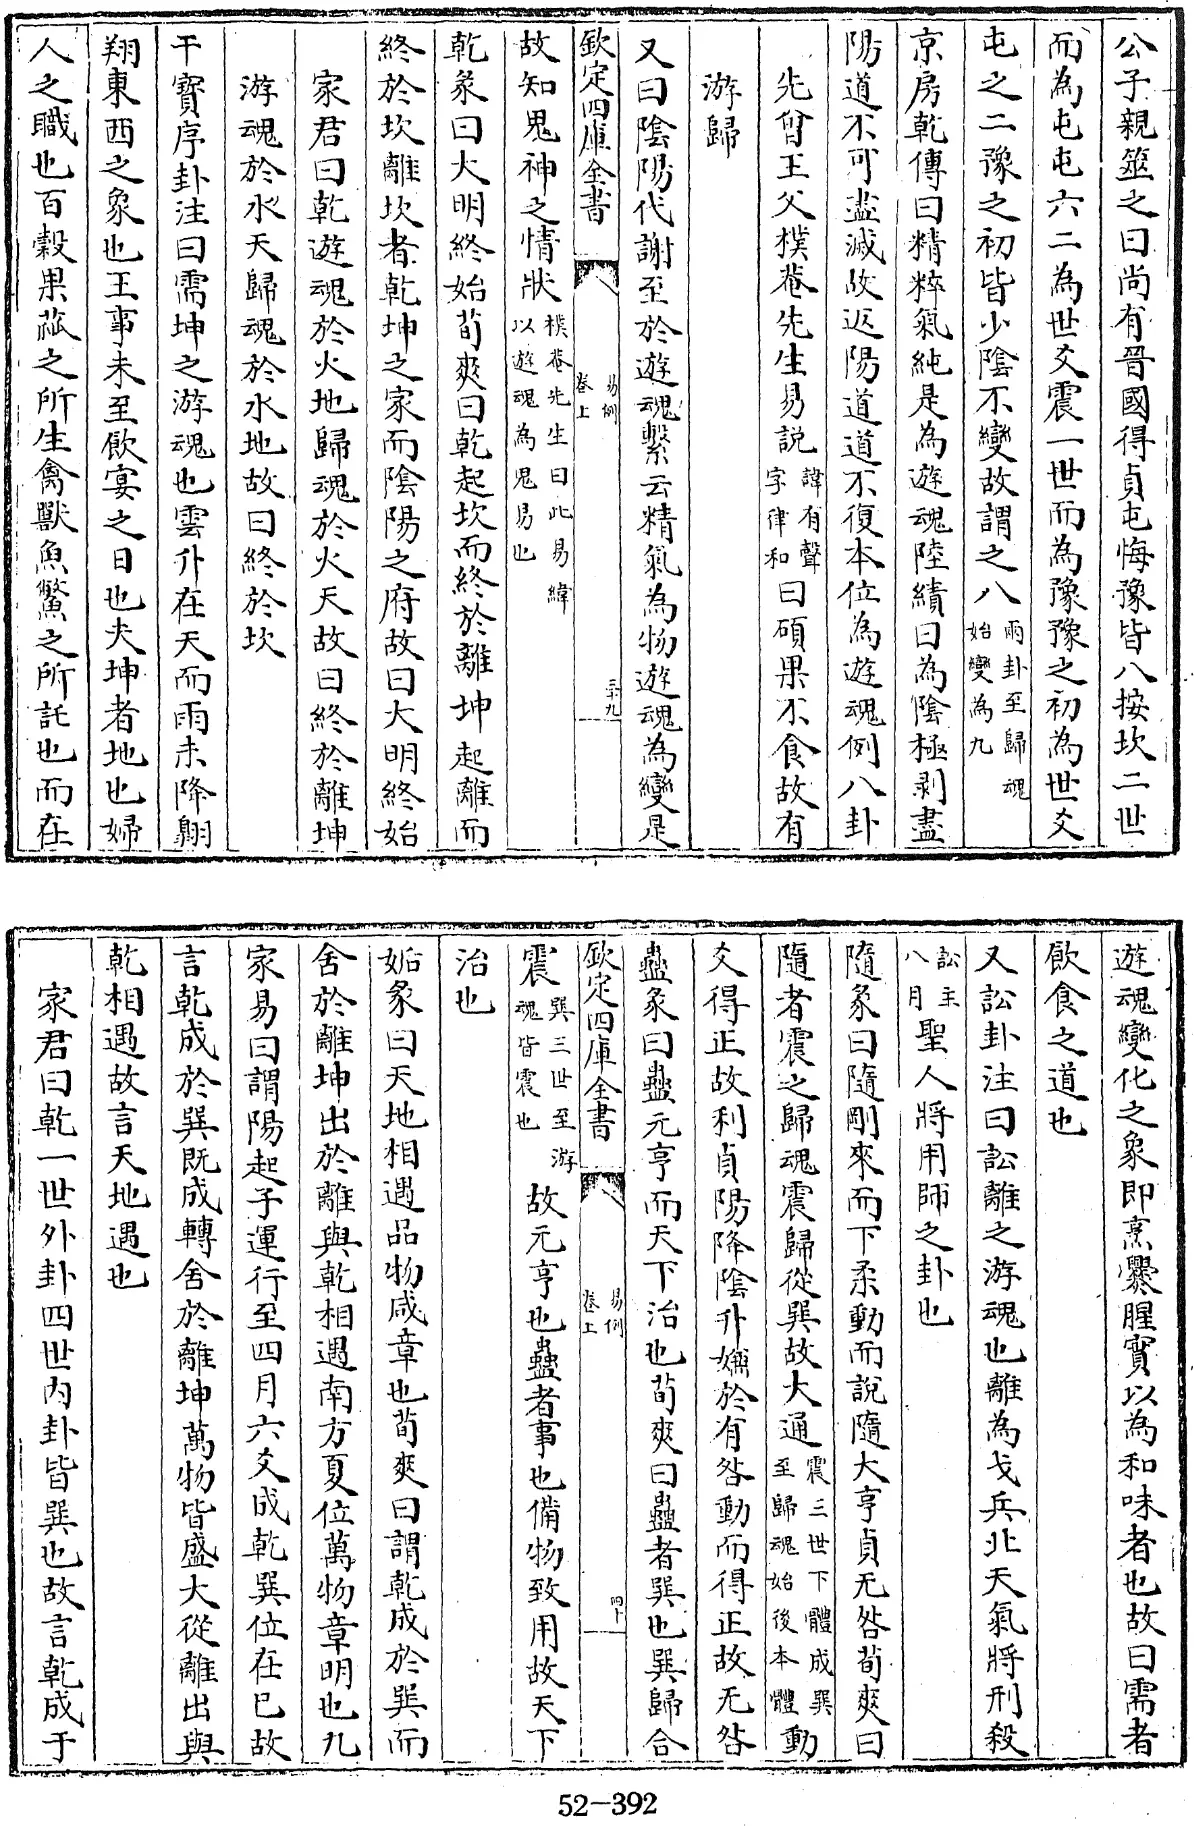 公子親筮之曰尚有晉國得貞屯悔豫皆八按坎二世
而為屯屯六二為世爻震一世而為豫豫之初為世爻
屯之二豫之初皆少陰不變故謂之八兩卦至歸魂始變為九
京房乾傳曰精粹氣純是為遊魂陸績曰為陰極剥盡
陽道不可盡滅故返陽道道不復本位為遊魂例八卦
先曾王父樸菴先生易説諱有聲字律和曰碩果不食故有
游歸
又曰陰陽代謝至於遊魂繫云精氣為物遊魂為變是
欽定四庫全書
易例
卷上
三十九
故知鬼神之情狀樸菴先生曰此易緯以遊魂為鬼易也
乾彖曰大明終始荀爽曰乾起坎而終於離坤起離而
終於坎離坎者乾坤之家而陰陽之府故曰大明終始
家君曰乾遊魂於火地歸魂於火天故曰終於離坤
游魂於水天歸魂於水地故曰終於坎
干寶序卦注曰需坤之游魂也雲升在天而雨未降翺
翔東西之象也王事未至飲宴之日也夫坤者地也婦
人之職也百穀果蓏之所生禽獸魚鱉之所託也而在
遊魂變化之象即烹爨腥實以為和味者也故曰需者
飲食之道也
又訟卦注曰訟離之游魂也離為戈兵此天氣將刑殺
訟主八月聖人將用師之卦也
隨彖曰隨剛來而下柔動而説隨大亨貞无咎荀爽曰
隨者震之歸魂震歸從巽故大通震三世下體成巽至歸魂始後本體動
爻得正故利貞陽降陰升嫌於有咎動而得正故无咎
蠱彖曰蠱元亨而天下治也荀爽曰蠱者巽也巽歸合
欽定四庫全書
易例
卷上
四十
震巽三世至游魂皆震也故元亨也蠱者事也備物致用故天下
治也
姤彖曰天地相遇品物咸章也荀爽曰謂乾成於巽而
舍於離坤出於離與乾相遇南方夏位萬物章明也九
家易曰謂陽起子運行至四月六爻成乾巽位在巳故
言乾成於巽既成轉舍於離坤萬物皆盛大從離出與
乾相遇故言天地遇也
家君曰乾一世外卦四世内卦皆巽也故言乾成于
52-392